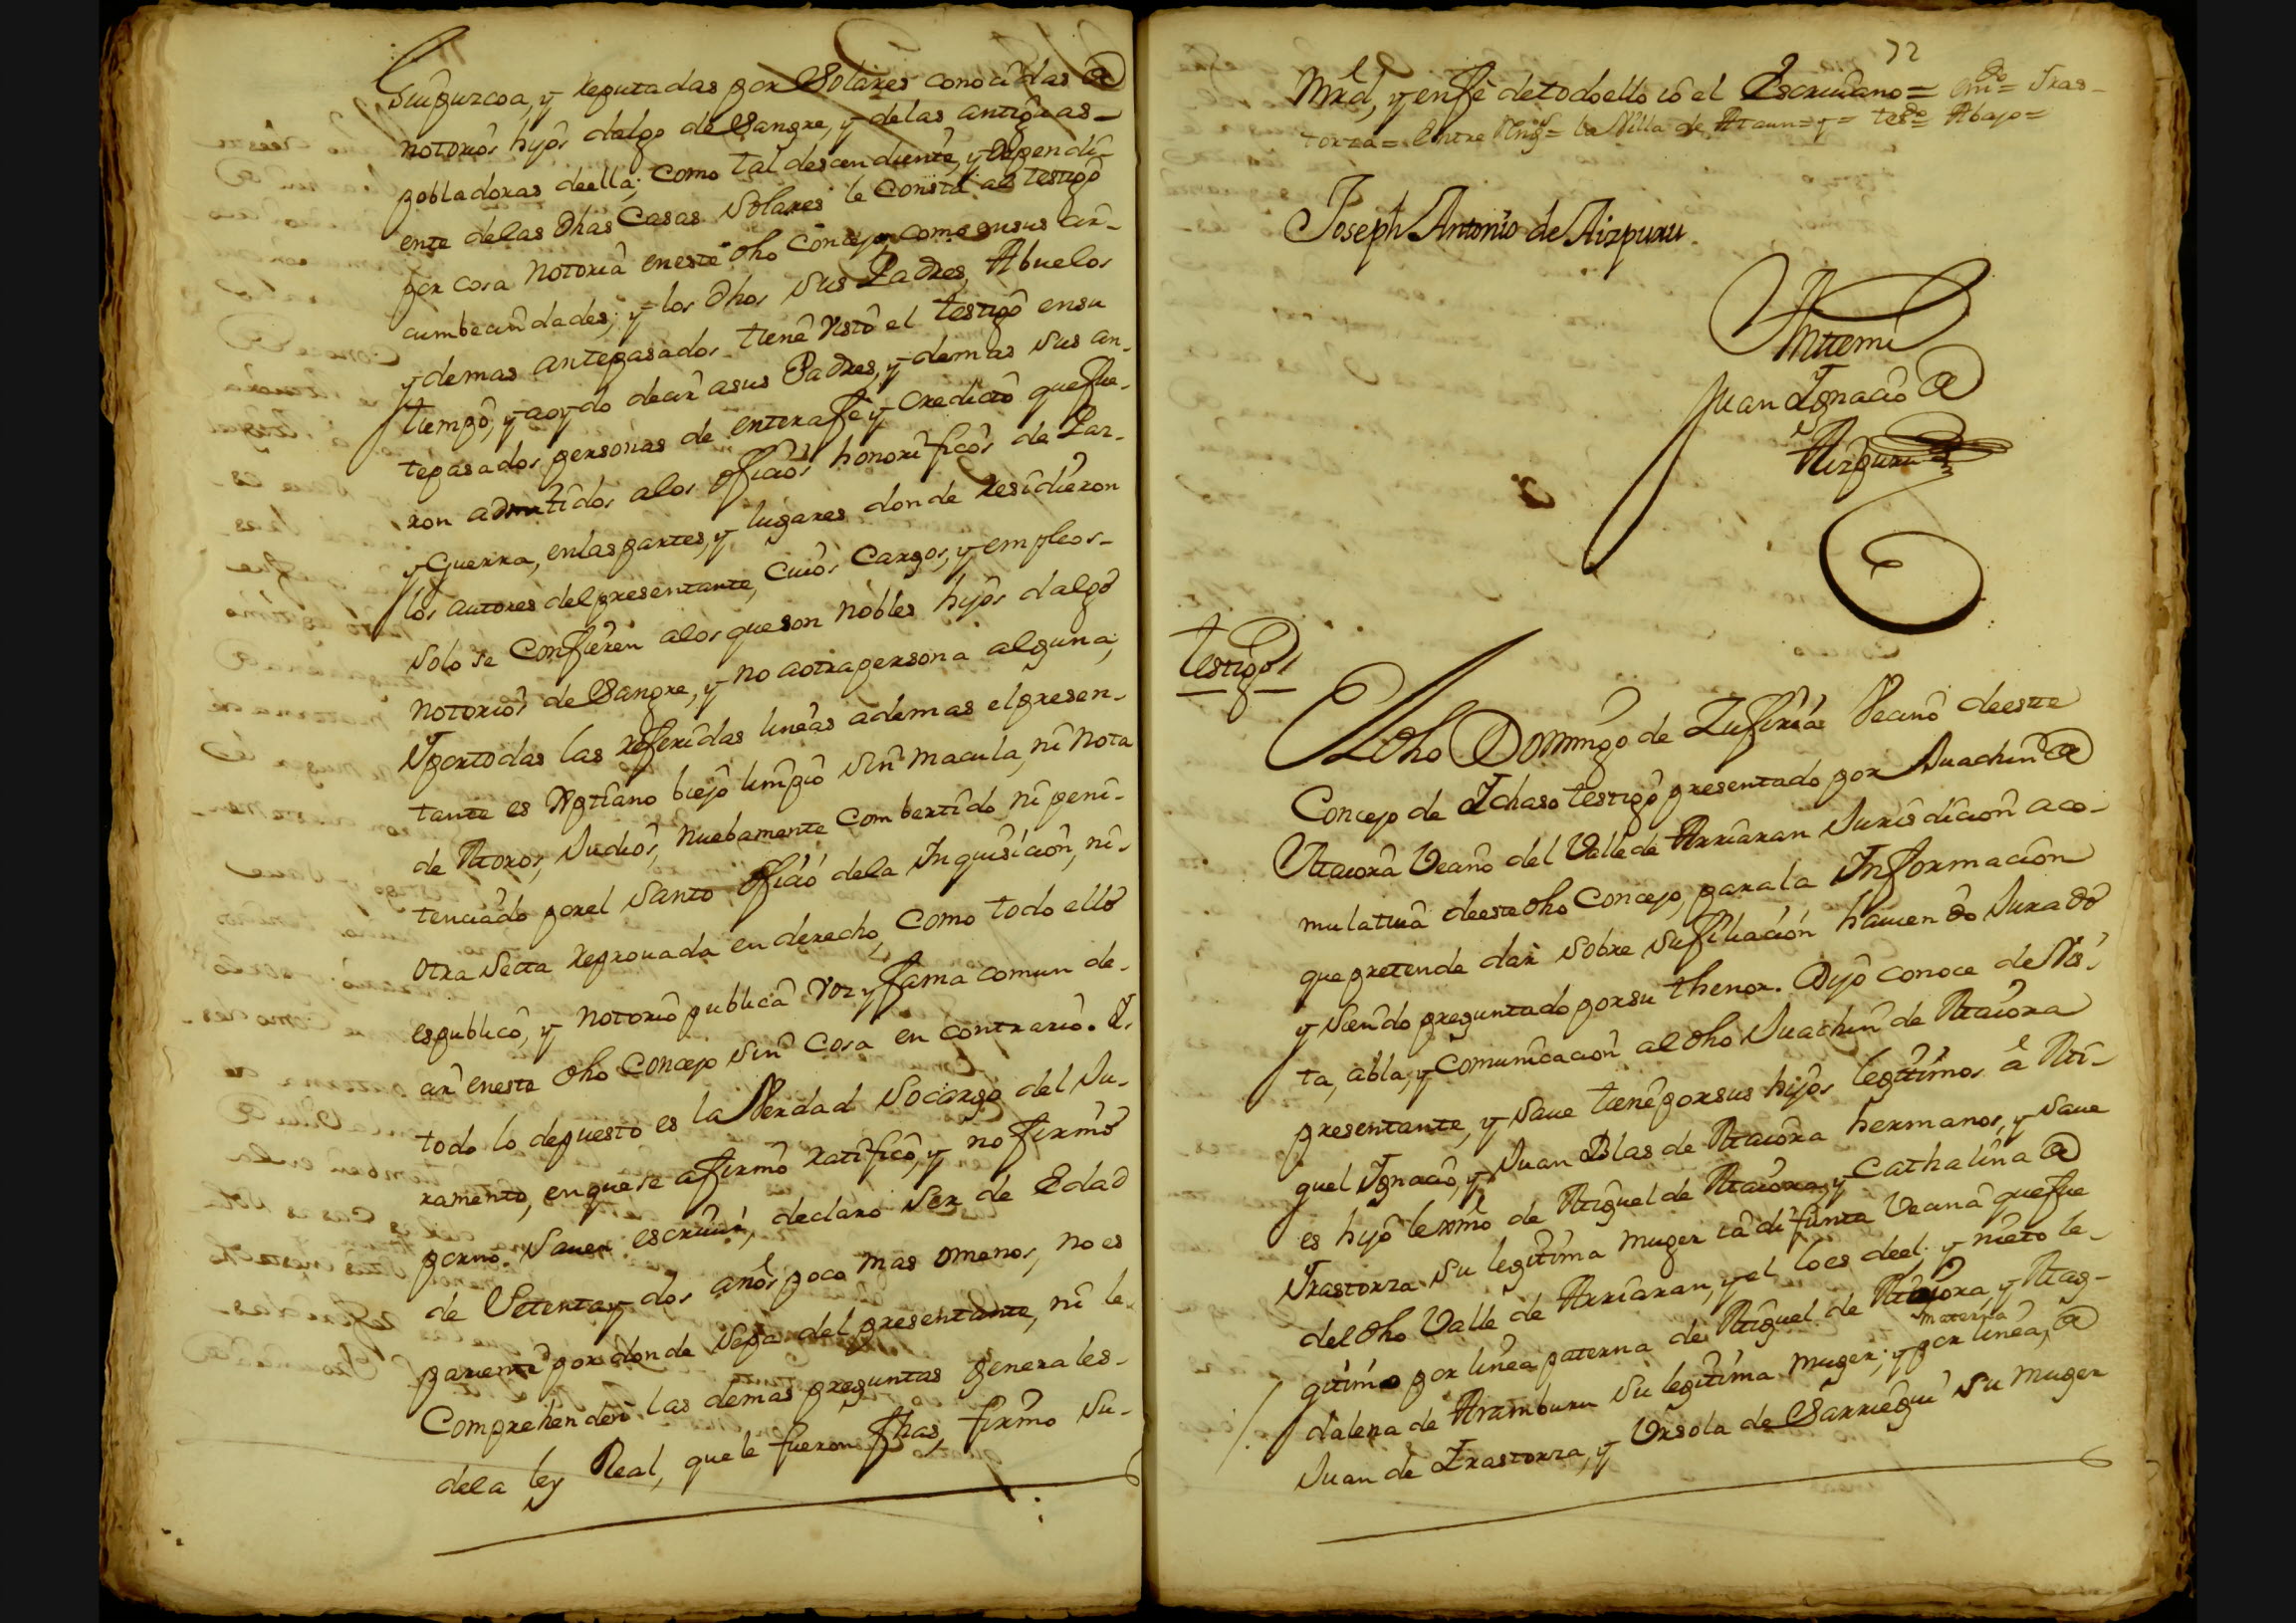 Guipuzcoa, y reputadas por Solares conocidas de
notorios hijos dalgo de Sangre, y delas antiguas
pobladoras deella; como tal descendiente, y dependi-
ente delas dhas Casas Solares le Consta al testigo
por cosa notoria eneste dho Concejo, como ensus cir-
cumbecindades; y los dhos sus Padres, Abuelos
y demas antepasados tiene visto el testigo ensu
tiempo, y aoydo decir asus Padres, y demas sus an-
tepasados personas de enterafe y credicto quefue-
ron admitidos alos oficios honorificos de Paz
y Guerra, enlas partes, y lugares donde residieron
los autores delpresentante, cuios Cargos, y empleos
solo se Confieren alos queson nobles hijos dalgo
notorios de Sangre, y no aotrapersona alguna,
Yportodas las referidas lineas ademas elpresen-
tante es Xptiano biejo limpio sin macula, ni nota
de Moros, Judios, nuebamente Combertido, ni peni-
tenciado porel Santo oficio dela Inquisicion, ni
otra Secta reprouada en derecho, como todo ello
espublico, y notorio publica voz y fama comun de-
cir eneste dho Concejo sin cosa en contrario. Y
todo lo depuesto es la Verdad Socargo del Ju-
ramento, enquese afirmo ratifico, y no firmo
porno Sauer escriuir, declaro ser de Edad
de Setenta y dos años poco mas omenos, no es
pariente por donde Sepa del presentante, ni le
Comprehenden las demas preguntas generales
dela ley Real, que le fueron fhas, firmo Su
72
Mrd, y enfe detodoello io el Escriuano = = Iras-
torza = Entre Rengs = la Villa de Ataun = y = testo = Abajo =
Joseph Antonio de Aizpuru
Antemi
Juan Ignacio de
Aizpuru
testigo
El dho Domingo de Zufiria Vecino deeste
Concejo de Ichaso testigo presentado por Juachin de
Maiora Vecino del Valle de Arriaran Jurisdicion aco-
mulatiua deeste dho Concejo, para la Informacion
que pretende dar sobre sufiliacion hauiendo Jurado
y siendo preguntado porsu thenor. Dijo conoce de Vis-
ta, abla, y comunicacion al dho Juachin de Maiora
presentante, y Saue tiene porsus hijos legitimos á Mi-
guel Ignacio, y Juan Blas de Maiora hermanos, y Saue
es hijo lexmo de Miguel de Maiora, y Cathalina de
Irastorza su legitima muger ia difunta Vecina quefue
del dho Valle de Arriaran, y el loes deel; y nieto le-
gitimo por linea paterna de Miguel de Maiora, y Mag-
dalena de Aramburu su legitima muger; y por linea materna, de
Juan de Irastorza, y Ursola de Sarriegui su muger